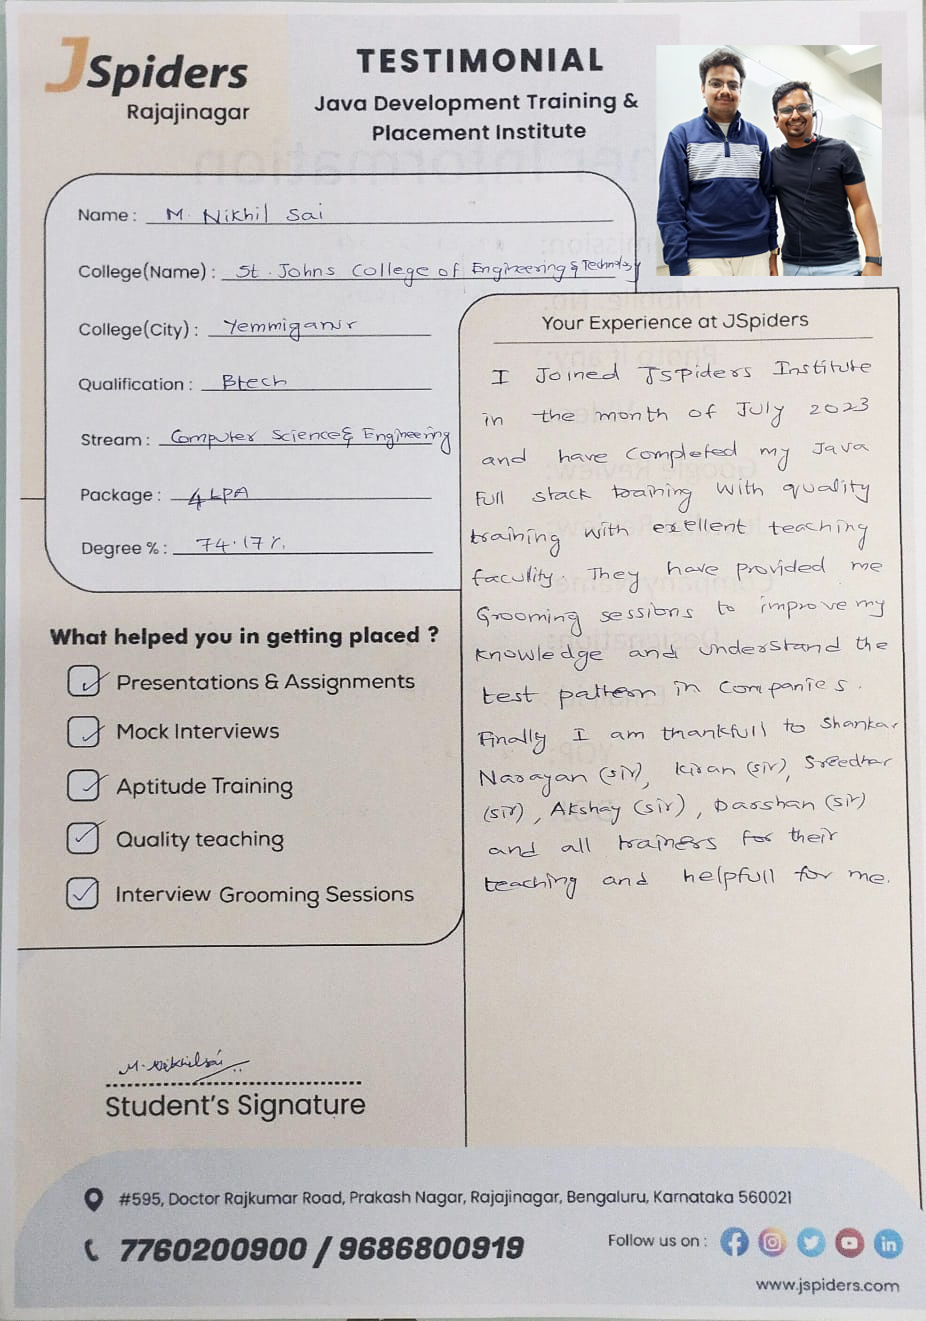 JSpiders
Rajajinagar
TESTIMONIAL
Java Development Training &
Placement Institute
Name : M. Nikhil Sai
College(Name) : St. Johns College of Engineering & Technology
College(City) : Yemmiganur
Qualification : Btech
Stream : Computer Science & Engineering
Package : 4 LPA
Degree % : 74.17%
What helped you in getting placed ?
Presentations & Assignments
Mock Interviews
Aptitude Training
Quality teaching
Interview Grooming Sessions
Your Experience at JSpiders
I Joined JSpiders Institute
in the month of July 2023
and have completed my Java
Full stack training with quality
training with exellent teaching
faculity. They have provided me
Grooming sessions to improve my
knowledge and understand the
test pattern in companies.
Finally I am thankfull to Shankar
Narayan (sir), Kiran (sir), Sreedhar
(sir), Akshay (sir), Darshan (sir)
and all trainers for their
teaching and helpfull for me.
M. Nikhil sai
Student's Signature
#595, Doctor Rajkumar Road, Prakash Nagar, Rajajinagar, Bengaluru, Karnataka 560021
7760200900 / 9686800919
Follow us on :
www.jspiders.com